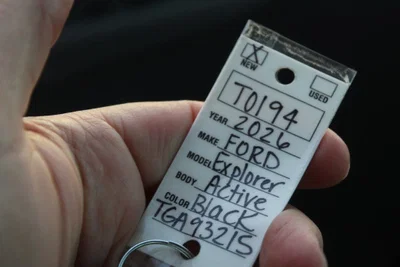 X
NEW
USED
T0194
YEAR 2026
MAKE FORD
MODEL Explorer
BODY Active
COLOR Black
TGA93215